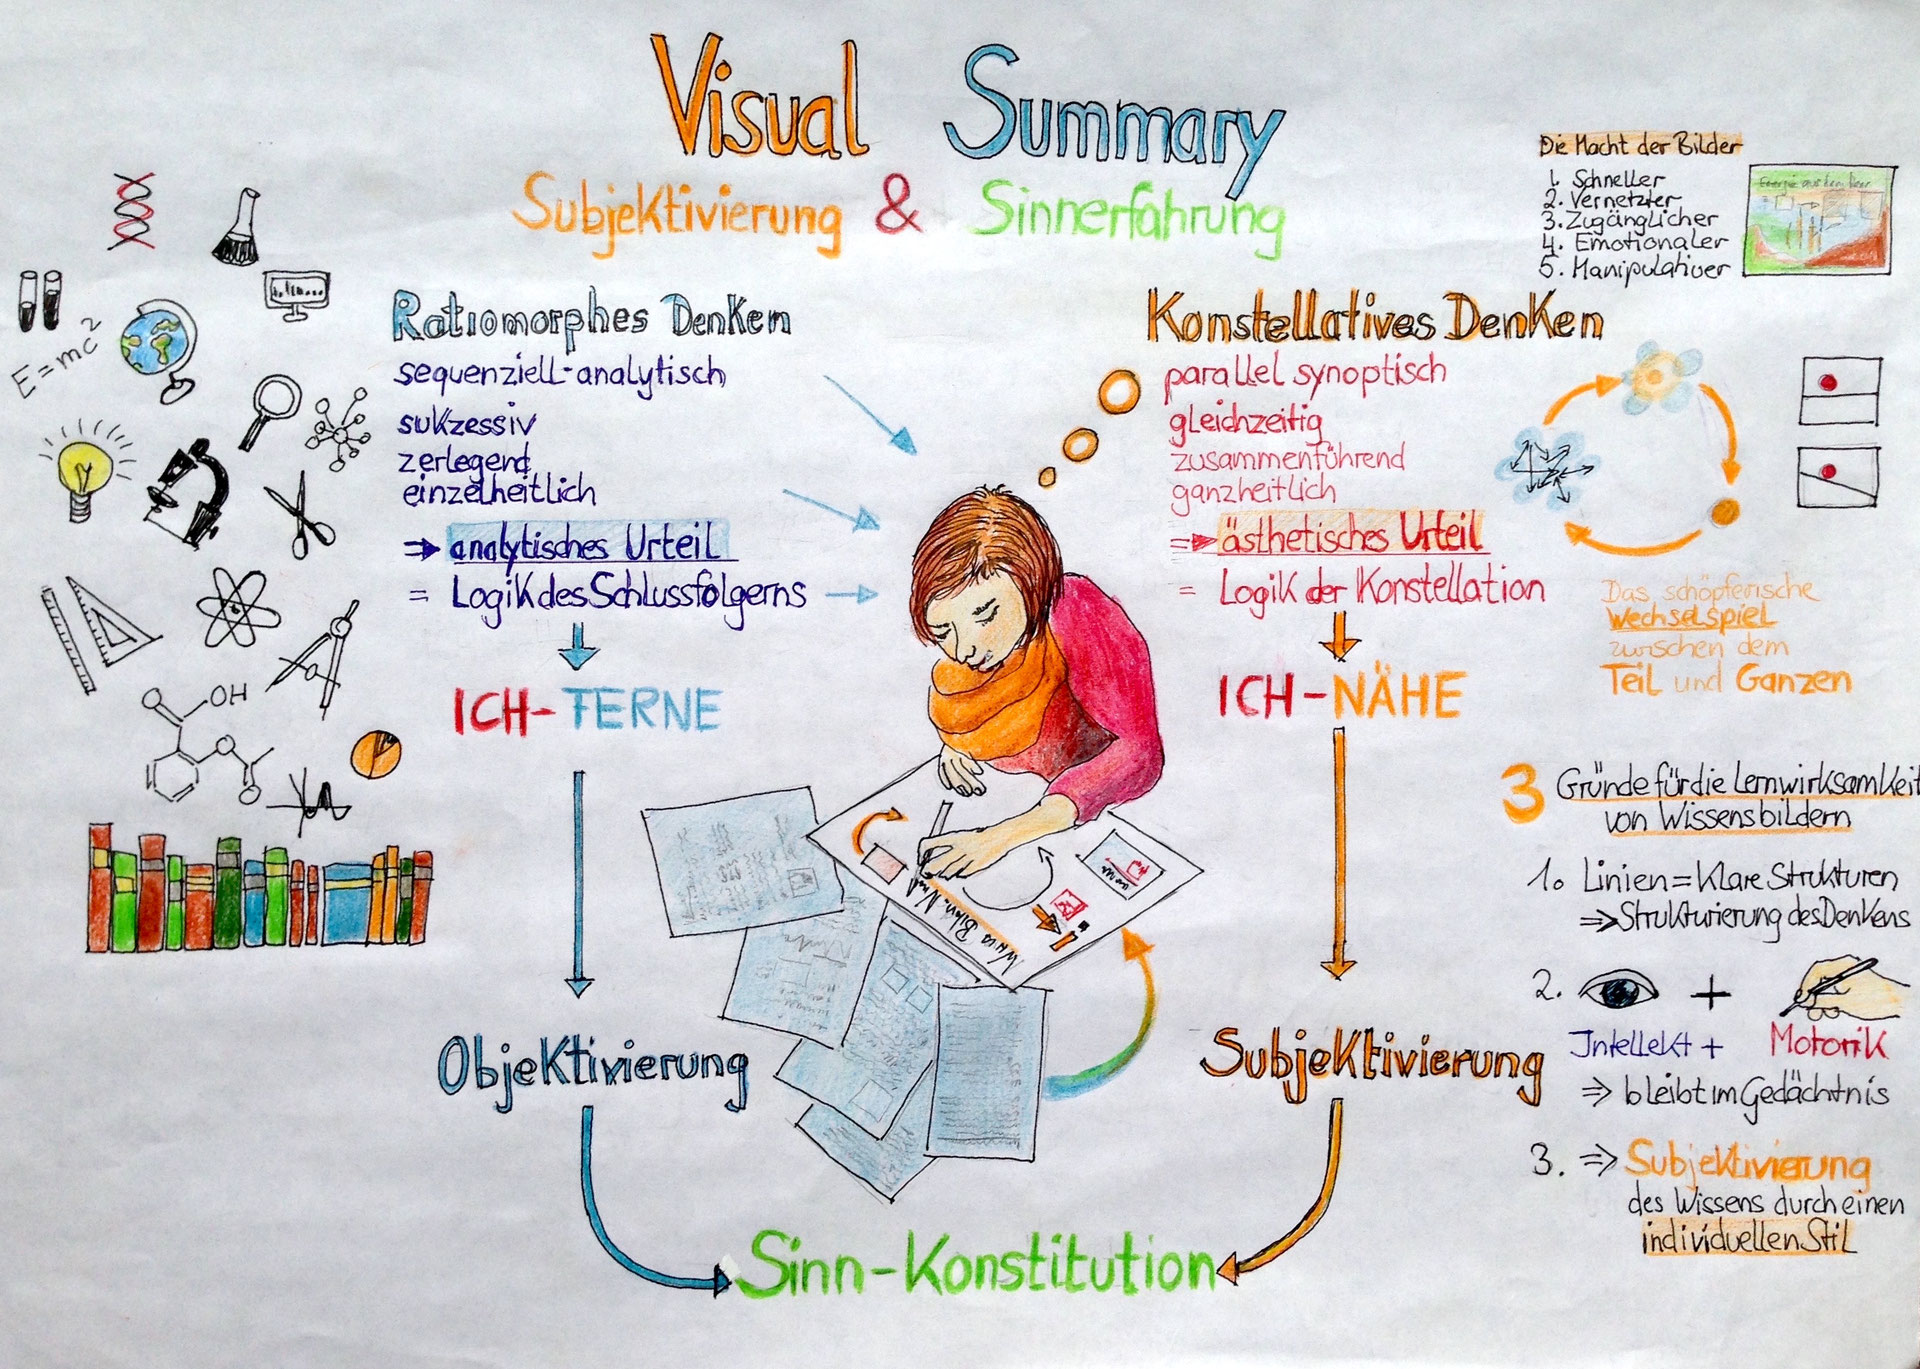 Visual Summary
Subjektivierung & Sinnerfahrung
Die Macht der Bilder
1. Schneller
2. Vernetzter
3. Zugänglicher
4. Emotionaler
5. Manipulativer
E=mc²
OH
Ratiomorphes Denken
sequenziell-analytisch
sukzessiv
zerlegend
einzelheitlich
⇒ analytisches Urteil
= Logik des Schlussfolgerns
ICH-FERNE
Objektivierung
Konstellatives Denken
parallel synoptisch
gleichzeitig
zusammenführend
ganzheitlich
⇒ ästhetisches Urteil
= Logik der Konstellation
ICH-NÄHE
Subjektivierung
Sinn-Konstitution
Das schöpferische
Wechselspiel
zwischen dem
Teil und Ganzen
3 Gründe für die Lernwirksamkeit
von Wissensbildern
1. Linien = Klare Strukturen
⇒ Strukturierung des Denkens
2. +
Intellekt + Motorik
⇒ bleibt im Gedächtnis
3. ⇒ Subjektivierung
des Wissens durch einen
individuellen Stil